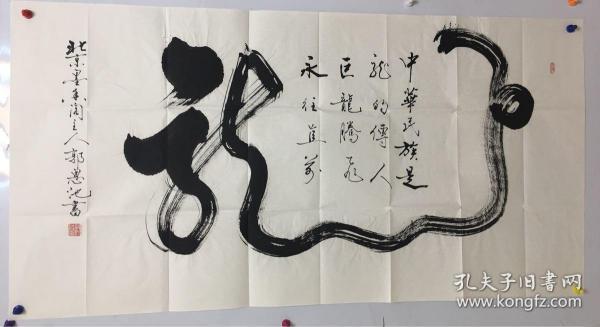 龍
中華民族是
龍的傳人
巨龍騰飛
永往直前
北京墨香阁主人郭 书
孔夫子旧书网
www.kongfz.com